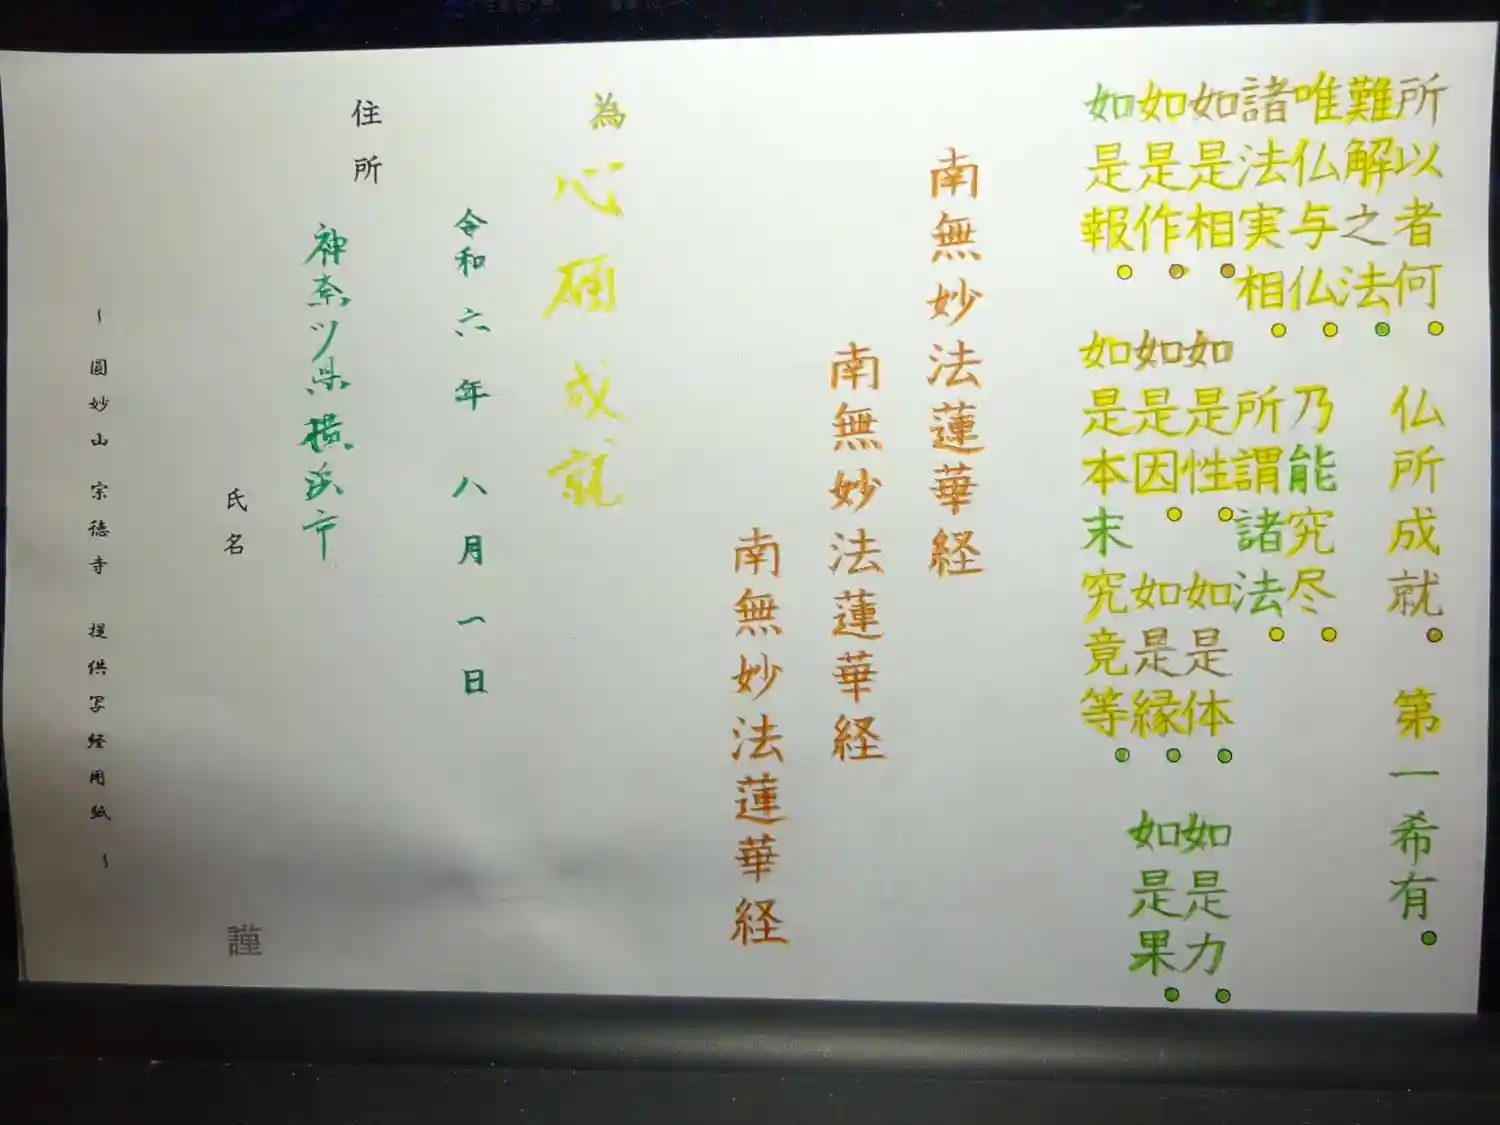 所以者何。仏所成就。第一希有。
難解之法。
唯仏与仏。乃能究尽。
諸法実相。所謂諸法。
如是相。如是性。如是体。如是力。
如是作。如是因。如是縁。如是果。
如是報。如是本末究竟等。
南無妙法蓮華経
南無妙法蓮華経
南無妙法蓮華経
為 心願成就
令和六年八月一日
住所
神奈川県横浜市
氏名
謹
~ 圓妙山 宗徳寺 提供写経用紙 ~